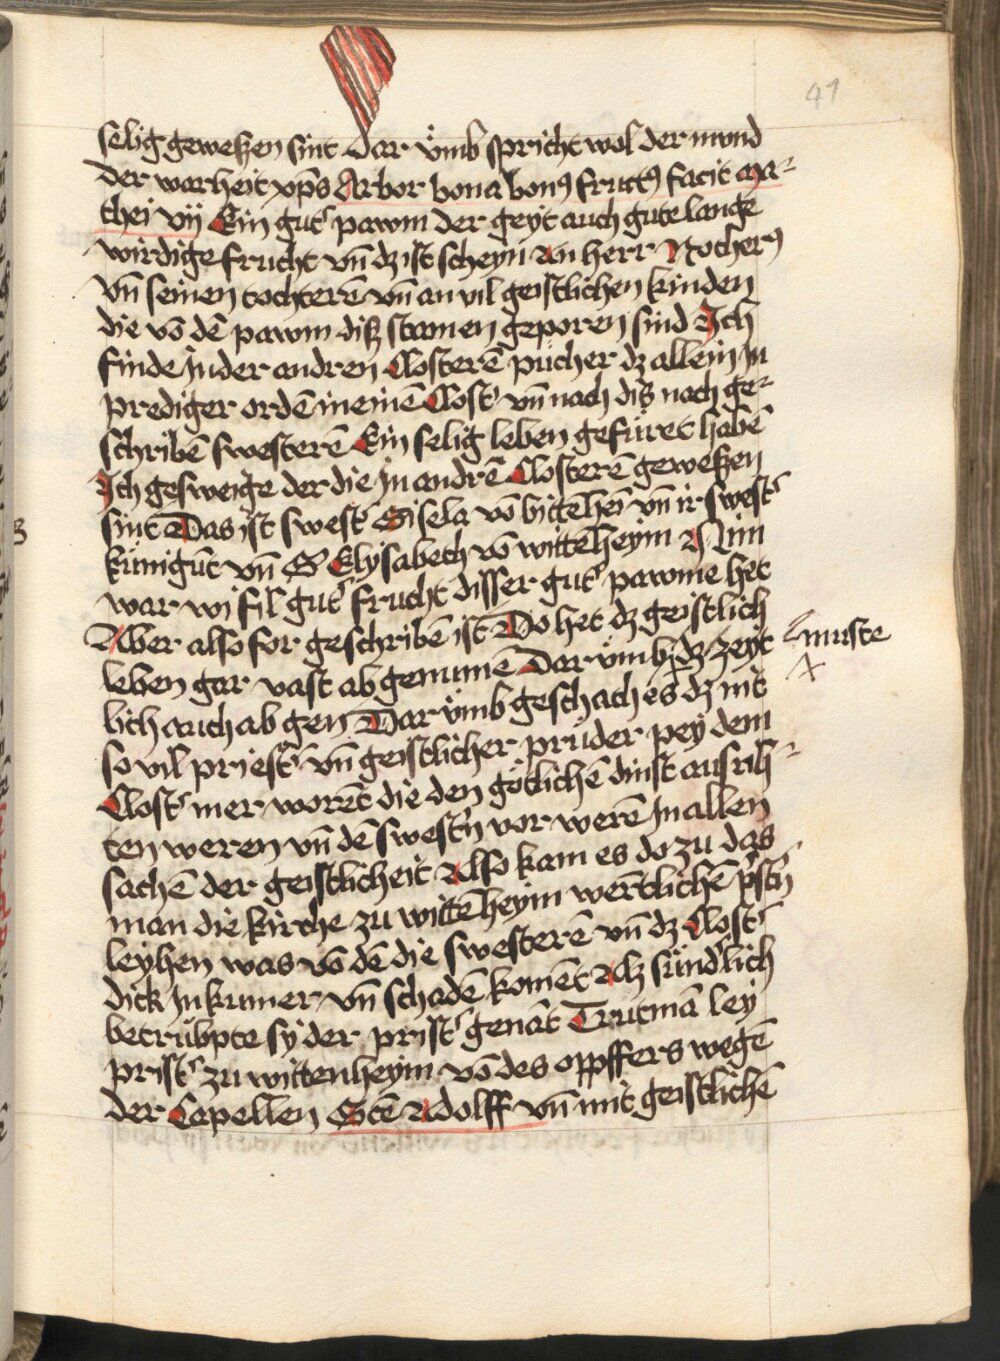 41
selig geweßen sint Dar vmb spricht wol der mund
der warheit xp̄s Arbor bona bonꝯ fructꝯ facit Ma-
thei vij Ein gut' pawm der geyt auch gute lange
wirdige frucht vn̄ dz ist scheyn An herr Nocherꝯ
Vn̄ seinen tochterē vn̄ an vil geistlichen kinden
die vō dē pawm diß stamen geporen sind Ich
finde Jn der andren Closterē pücher dz allein Jn
prediger ordē in einē Clost' vn̄ nach diß noch ge-
schribē swesterē Ein selig leben gefüret habē
Ich gesweige der die Jn andrē Closterē geweßen
sint Das ist swest' Gisela vō bittehē̄i vn̄ ir swest'
künigūt vn̄ S' Elysabeth vō wittēheym Nim
war wi fil gut' frucht disser gut' pawme het
Aber also for geschribē ist Do het dz geistlich
leben gar vast ab genumē Dar vmb dz zeyt
muste
lich auch ab gen Dar vmb geschach es dz nit
so vil priest' vn̄ geistlicher prüder pey dem
Clost' mer worēt die den götlichē dinst ausrih-
ten weren vn̄ dē swest'n vor werē Jn allen
sachē der geistlicheit Also kam es do zu das
man die kirche zu wittēheym wertlichē pst'n
leyhen was vō dē die swesterē vn̄ dz Clost'
dick Jn kumer vn̄ schadē komēt Alz sünd'lich
betrübpte sy der prist' genāt Trutmā ley
prist' zu wittenheym vō des opffers wegē
der Capellen Sctē Adolff vn̄ mit geistlichē